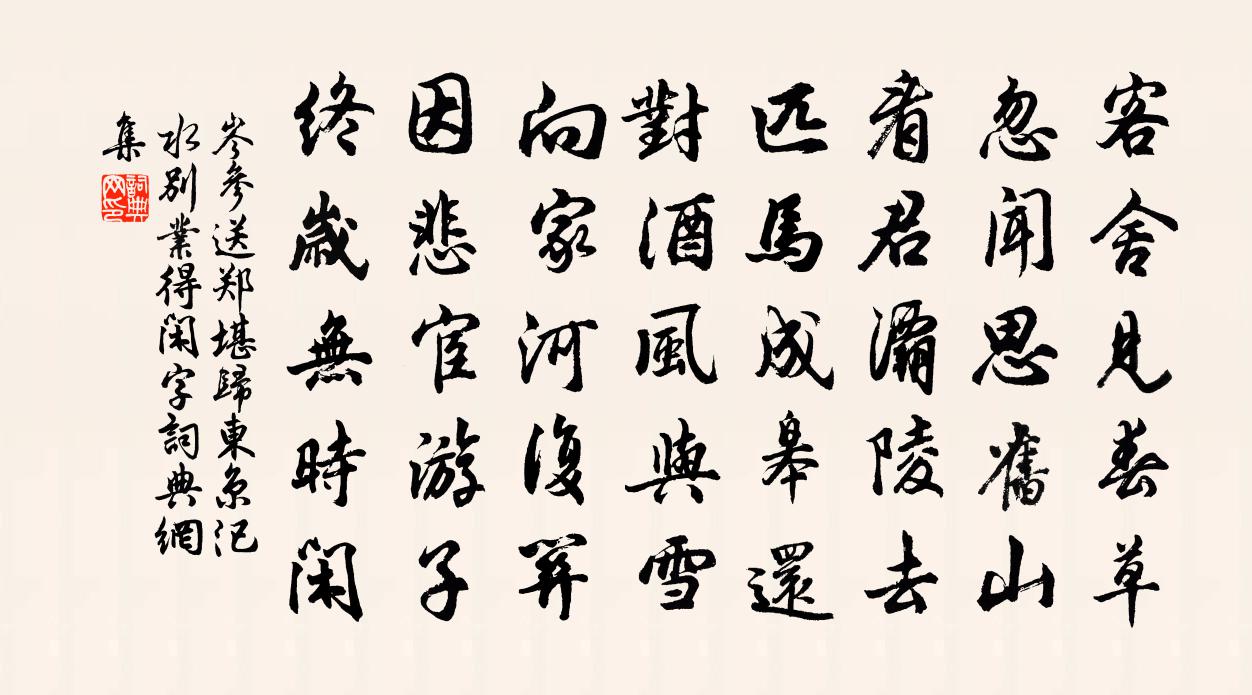 客舍見春草
忽聞思舊山
看君灞陵去
匹馬成皋還
對酒風與雪
向家河復關
因悲宦游子
終歲無時閑
岑參送郑堪歸東京汜
水別業得閑字詞典網
集
詞典
网印